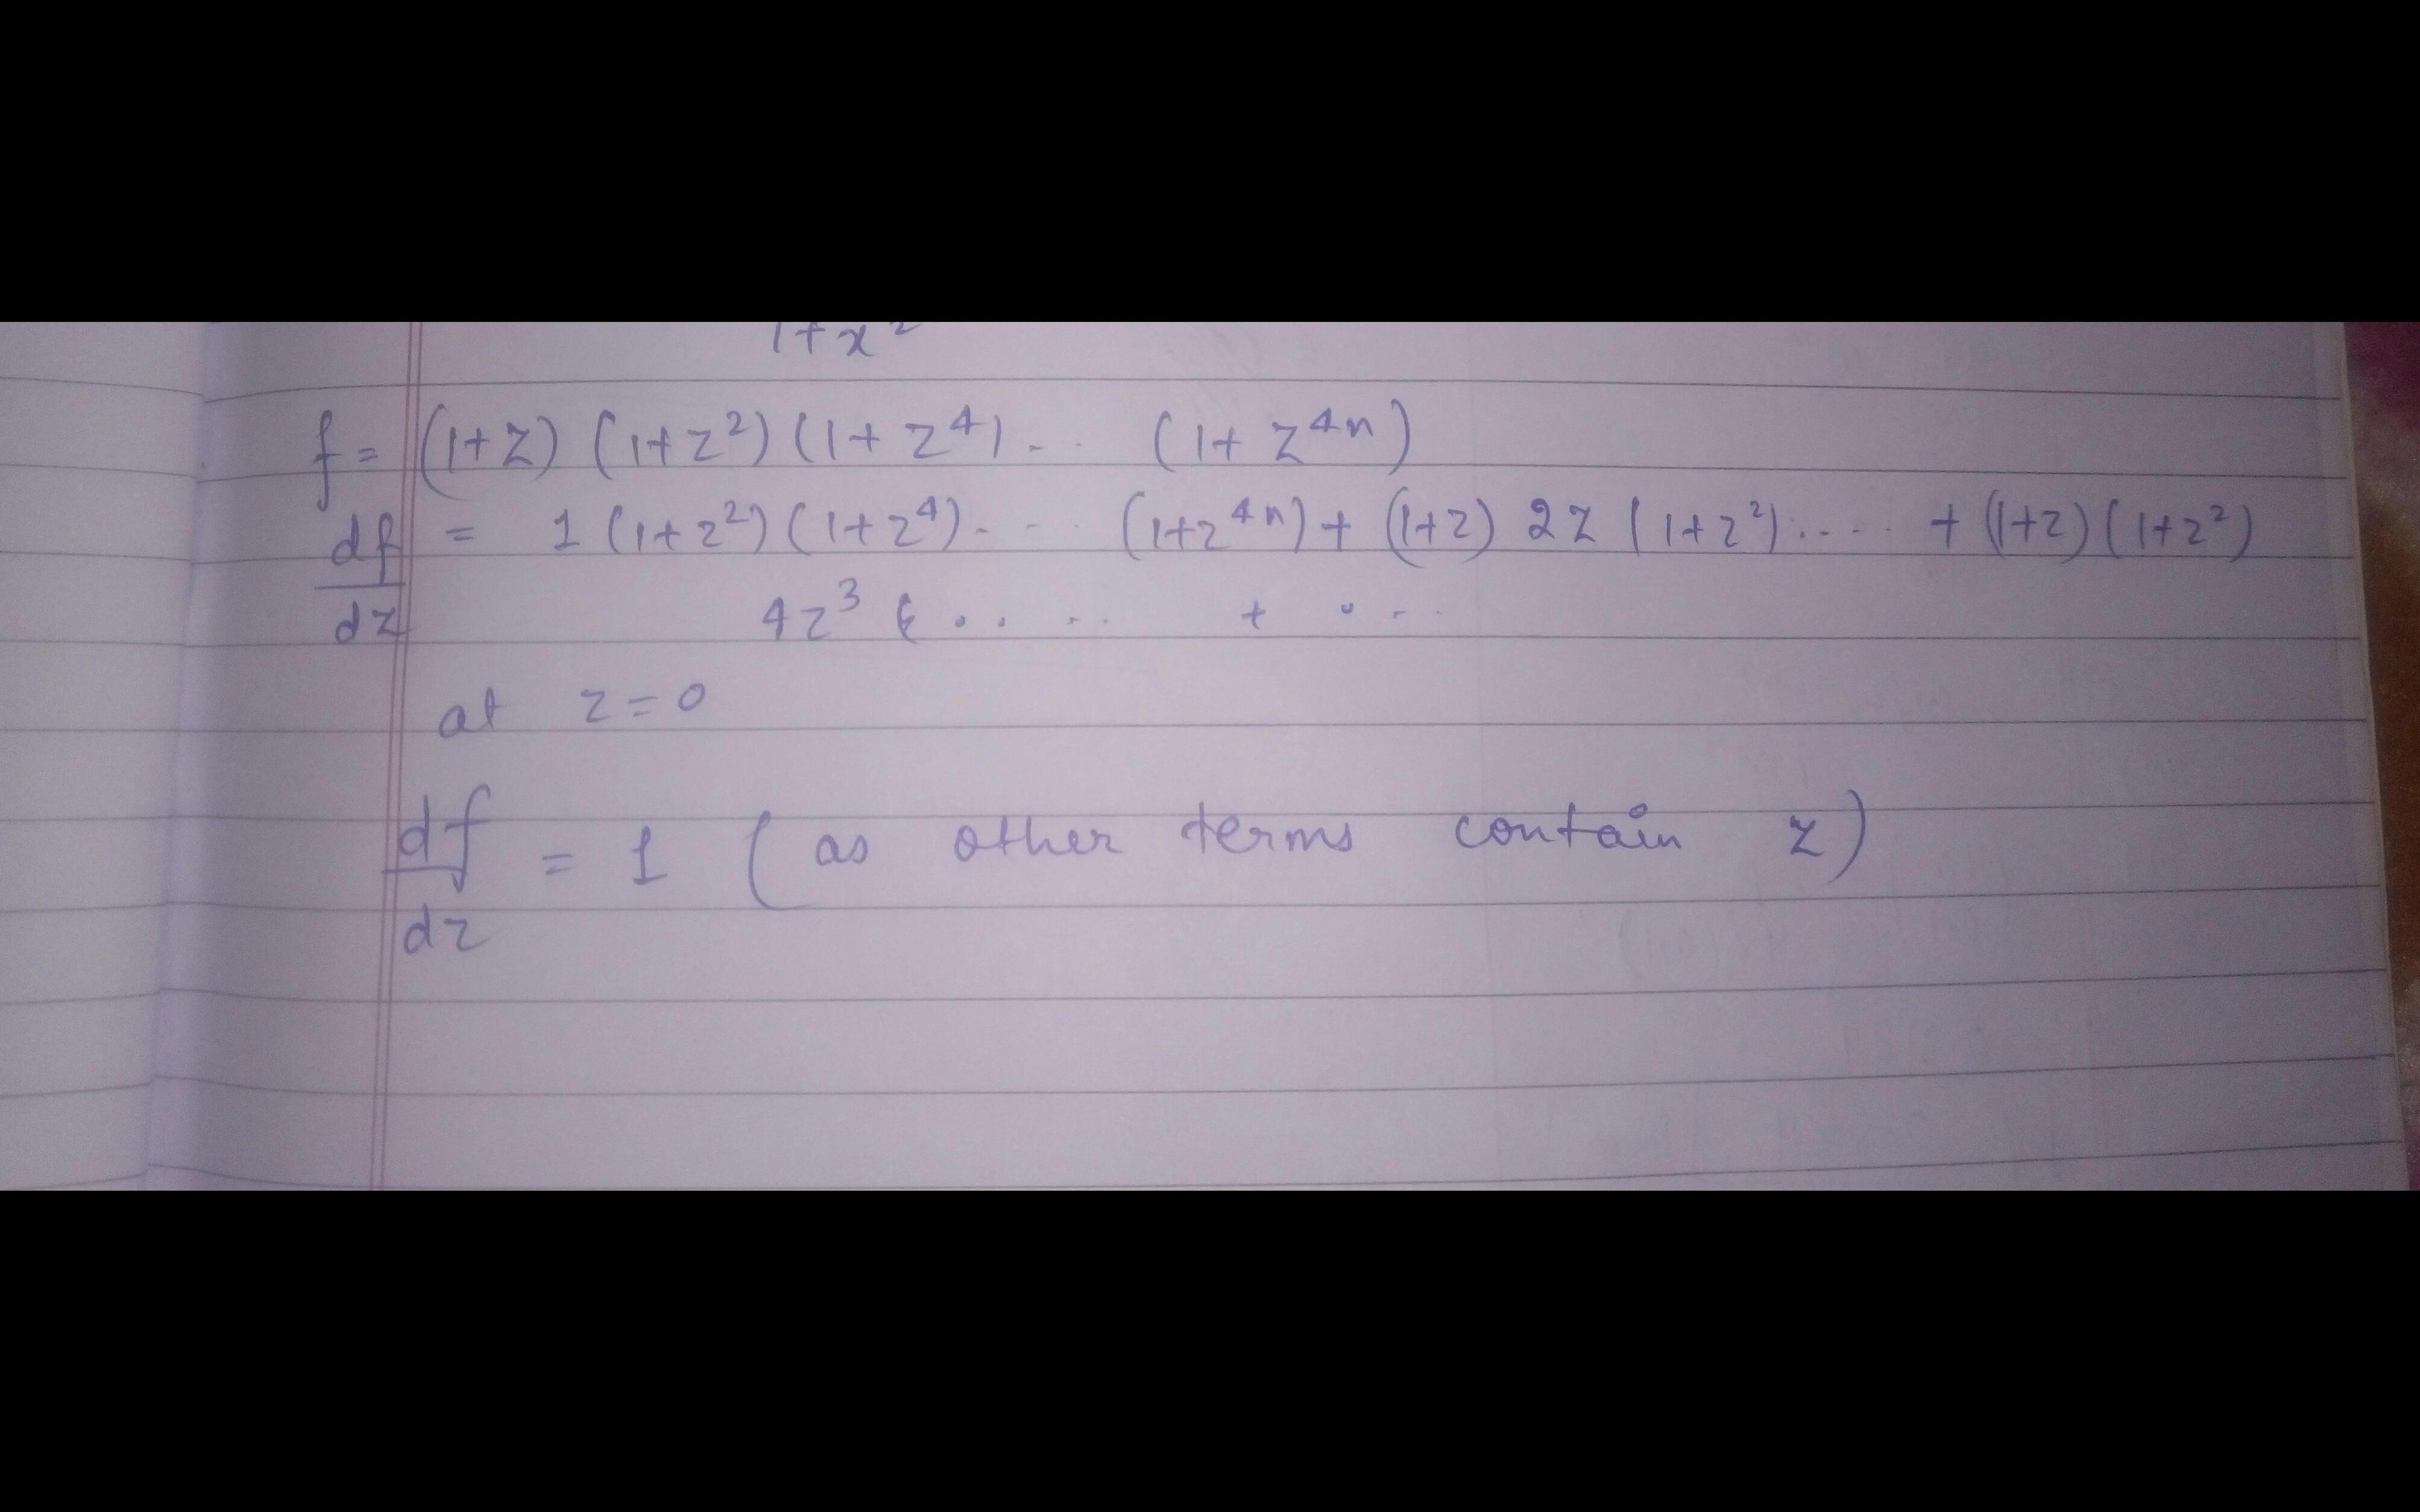 1+x²
f = (1+z) (1+z²) (1+z⁴) - - - (1+z⁴ⁿ)
df/dz = 1 (1+z²) (1+z⁴) - - - (1+z⁴ⁿ) + (1+z) 2z (1+z²) .... + (1+z) (1+z²)
4z³ ( . . . . + . . .
at z=0
df/dz = 1 (as other terms contain z)